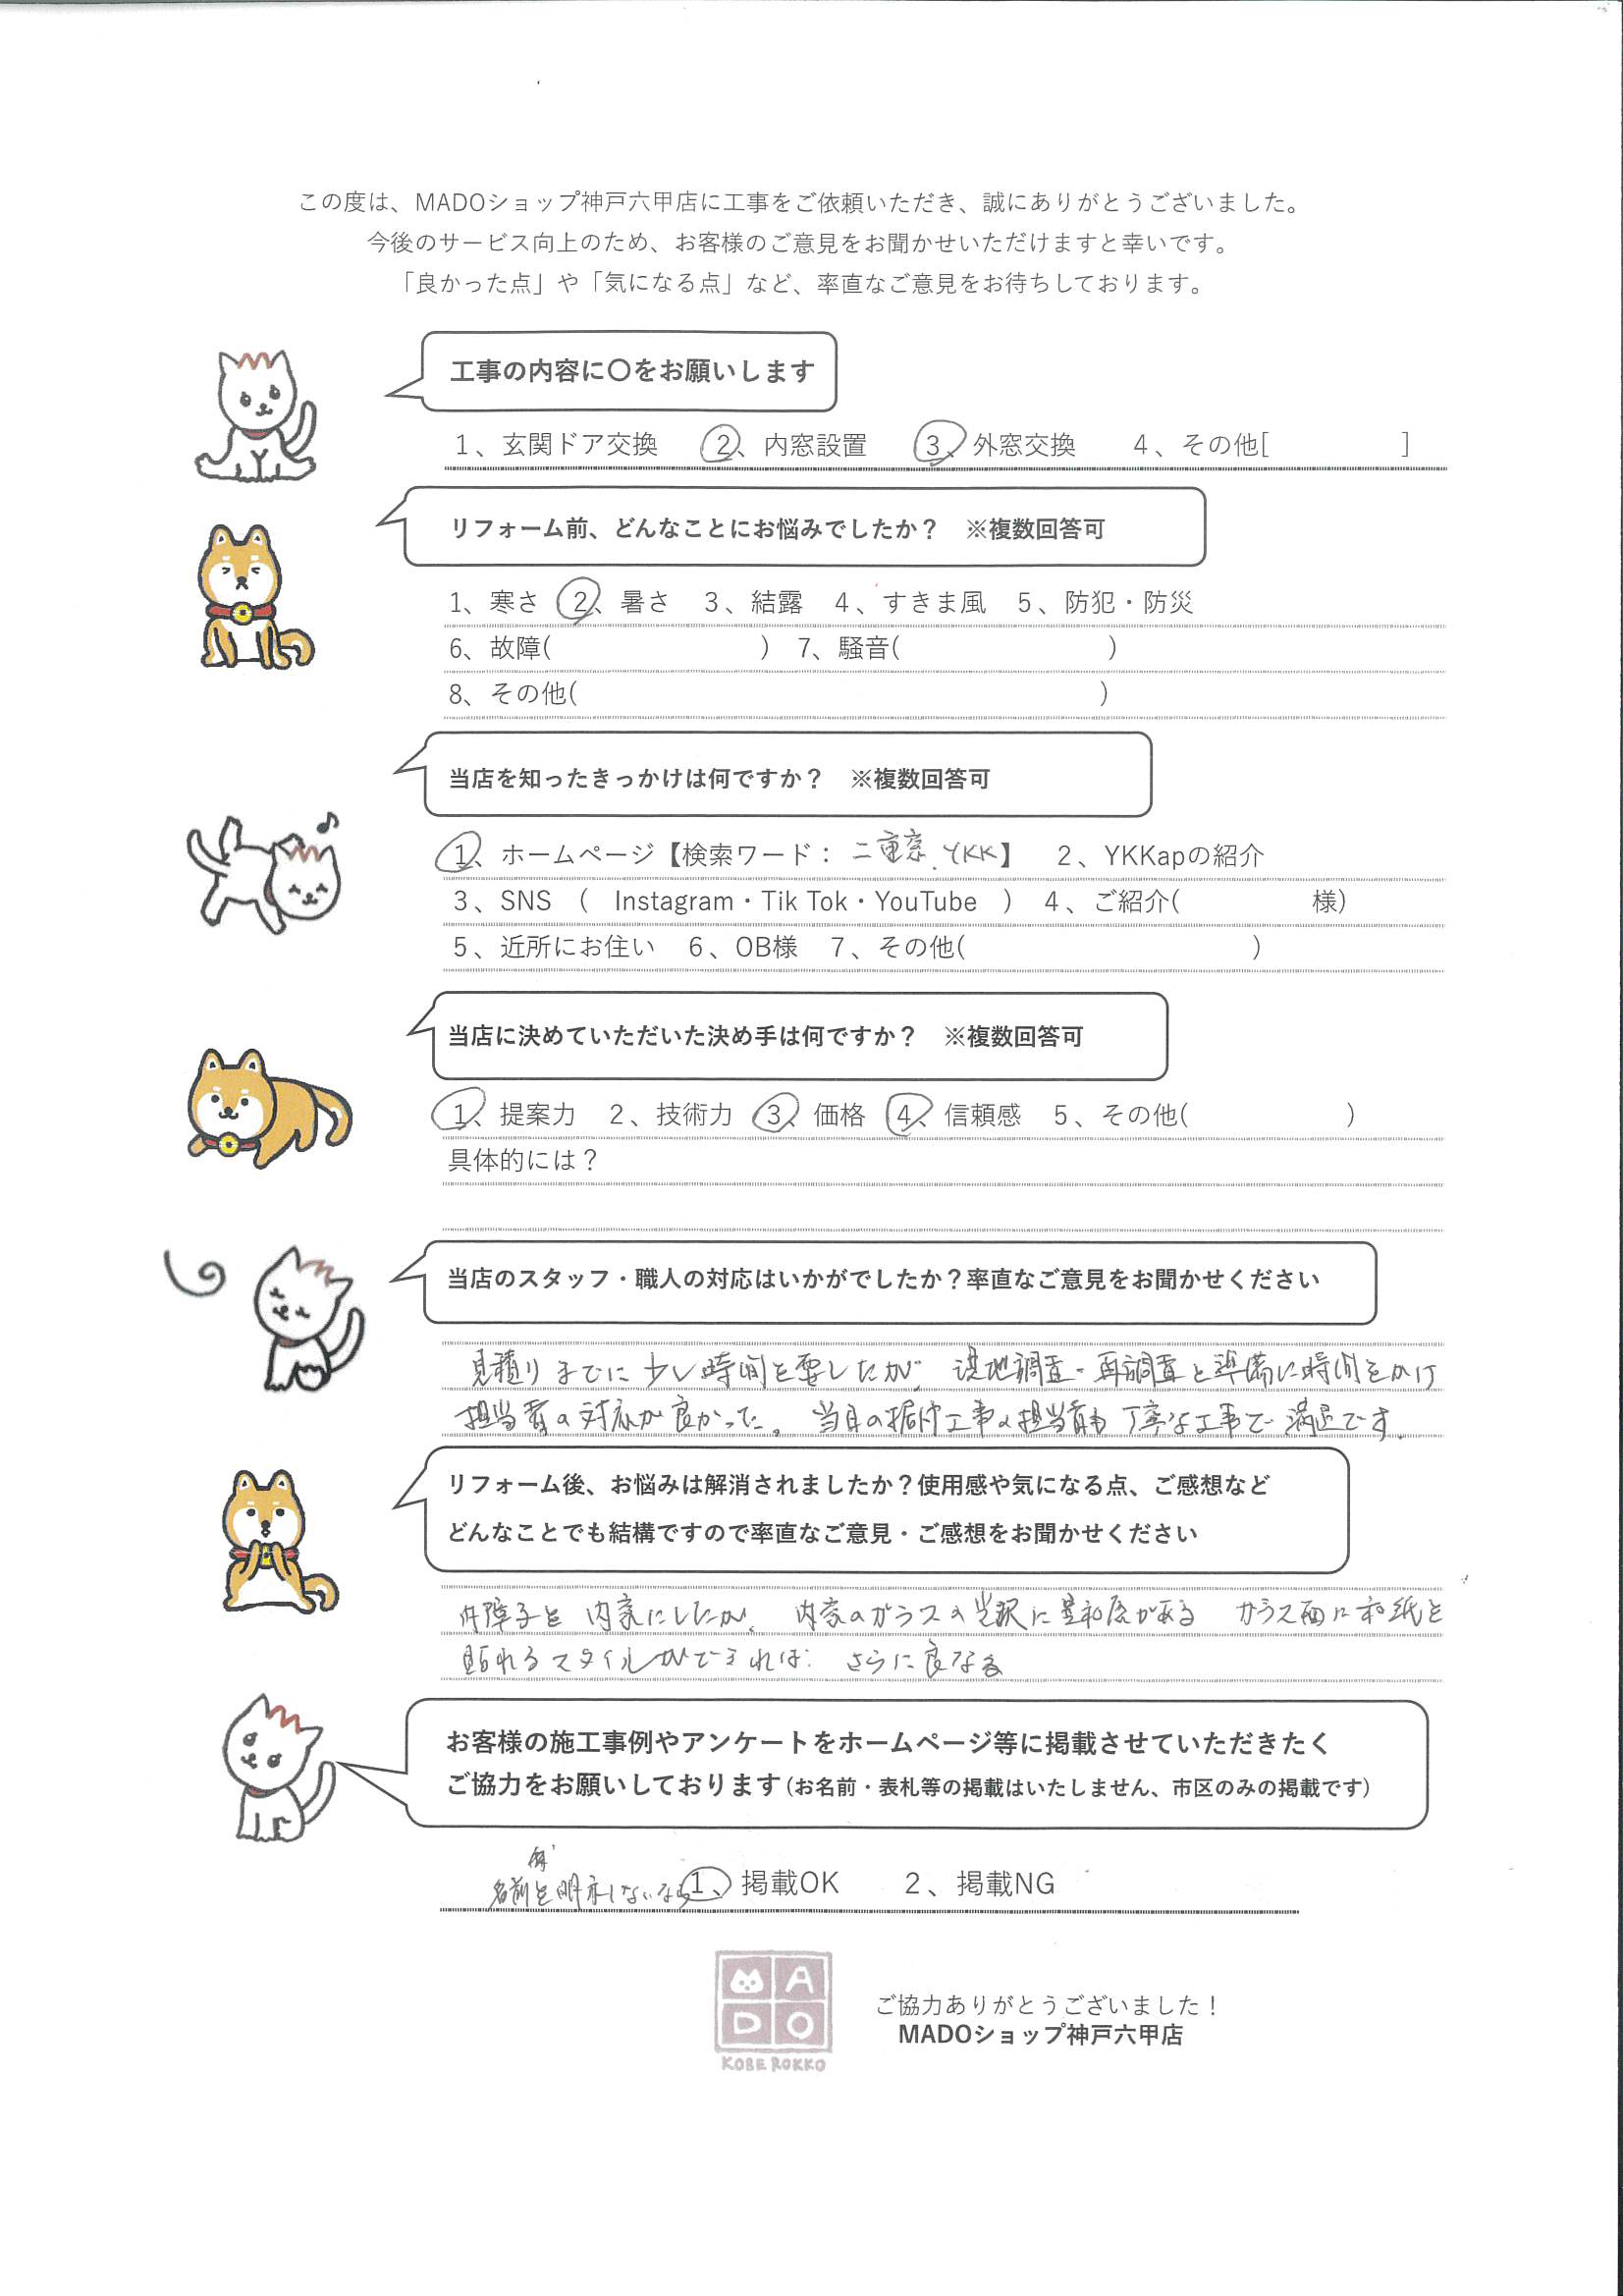 この度は、MADOショップ神戸六甲店に工事をご依頼いただき、誠にありがとうございました。
今後のサービス向上のため、お客様のご意見をお聞かせいただけますと幸いです。
「良かった点」や「気になる点」など、率直なご意見をお待ちしております。
工事の内容に〇をお願いします
1、玄関ドア交換 2、内窓設置 3、外窓交換 4、その他[ ]
リフォーム前、どんなことにお悩みでしたか？ ※複数回答可
1、寒さ 2、暑さ 3、結露 4、すきま風 5、防犯・防災
6、故障( ) 7、騒音( )
8、その他( )
当店を知ったきっかけは何ですか？ ※複数回答可
1、ホームページ【検索ワード： 二重窓、YKK】 2、YKKapの紹介
3、SNS ( Instagram・Tik Tok・YouTube ) 4、ご紹介( 様)
5、近所にお住い 6、OB様 7、その他( )
当店に決めていただいた決め手は何ですか？ ※複数回答可
1、提案力 2、技術力 3、価格 4、信頼感 5、その他( )
具体的には？
当店のスタッフ・職人の対応はいかがでしたか？率直なご意見をお聞かせください
見積りまでに少し時間を要したが、現地調査・再調査と準備に時間をかけ
担当者の対応が良かった。当日の据付工事の担当者も丁寧な工事で満足です。
リフォーム後、お悩みは解消されましたか？使用感や気になる点、ご感想など
どんなことでも結構ですので率直なご意見・ご感想をお聞かせください
内障子を内窓にしたが、内窓のガラスの光沢に違和感がある ガラス面に和紙を
貼れるスタイルができれば さらに良くなる
お客様の施工事例やアンケートをホームページ等に掲載させていただきたく
ご協力をお願いしております(お名前・表札等の掲載はいたしません、市区のみの掲載です)
名前を明示しないなら 1、掲載OK 2、掲載NG
A
D O
KOBE ROKKO
ご協力ありがとうございました！
MADOショップ神戸六甲店